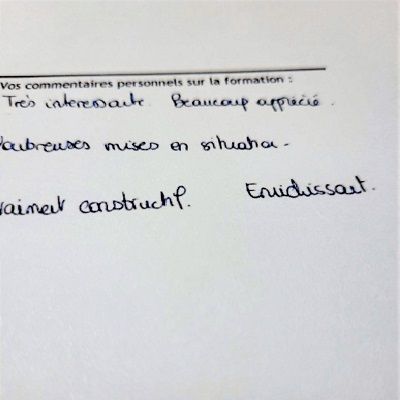 Vos commentaires personnels sur la formation :
Très interessante. Beaucoup apprécié.
Noubreuses mises en situation -
vraiment constructif. Enrichissant.